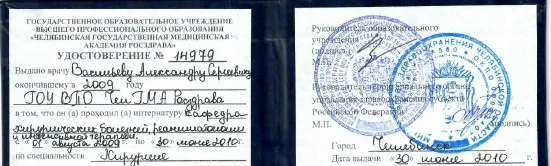 ГОСУДАРСТВЕННОЕ ОБРАЗОВАТЕЛЬНОЕ УЧРЕЖДЕНИЕ
ВЫСШЕГО ПРОФЕССИОНАЛЬНОГО ОБРАЗОВАНИЯ
«ЧЕЛЯБИНСКАЯ ГОСУДАРСТВЕННАЯ МЕДИЦИНСКАЯ
АКАДЕМИЯ РОСЗДРАВА»
УДОСТОВЕРЕНИЕ № 14979
Выдано врачу Васильеву Александру Сергеевичу
окончившему в 2009 году
ГОУ ВПО Чел ГМА Росздрава
в том, что он (а) проходил (а) интернатуру Кафедра
хирургических болезней, реаниматологии
и интенсивной терапии
с 01 августа 2009г. по 30 июня 2010г.
по специальности Хирургия
Руководитель образовательного
учреждения
(подпись)
М.П.
Руководитель
управления здравоохранения субъекта
Российской Федерации
(подпись)
М.П.
Город Челябинск
Дата выдачи «30 июня 2010г.
ЗДРАВООХРАНЕНИЯ ЧЕЛЯБИНСКОЙ ОБЛАСТИ